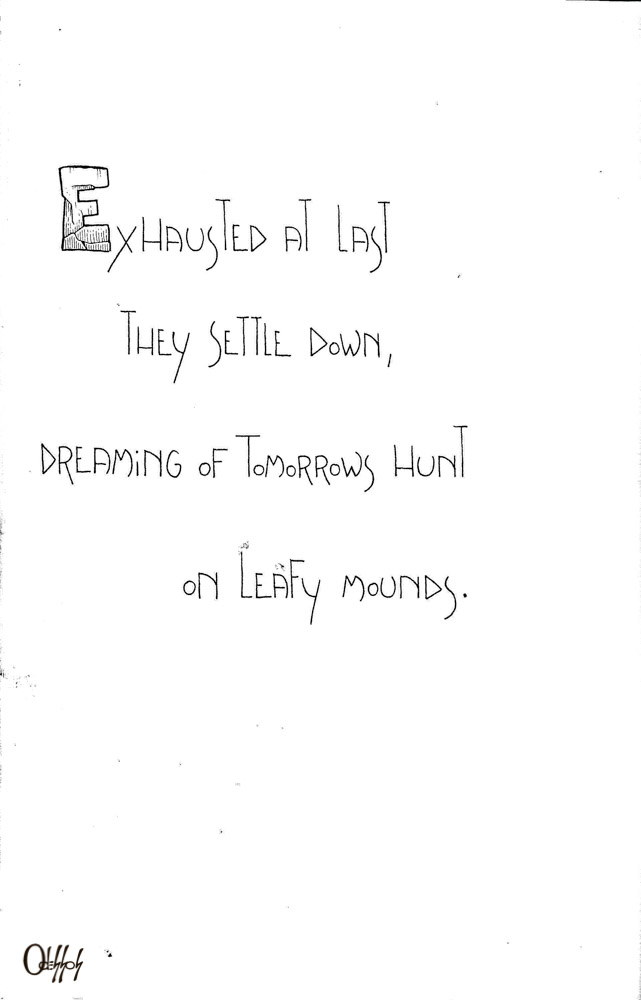 EXHAUSTED AT LAST
THEY SETTLE DOWN,
DREAMiNG OF TOMORROWS HUNT
ON LEAFY MOUNDS.